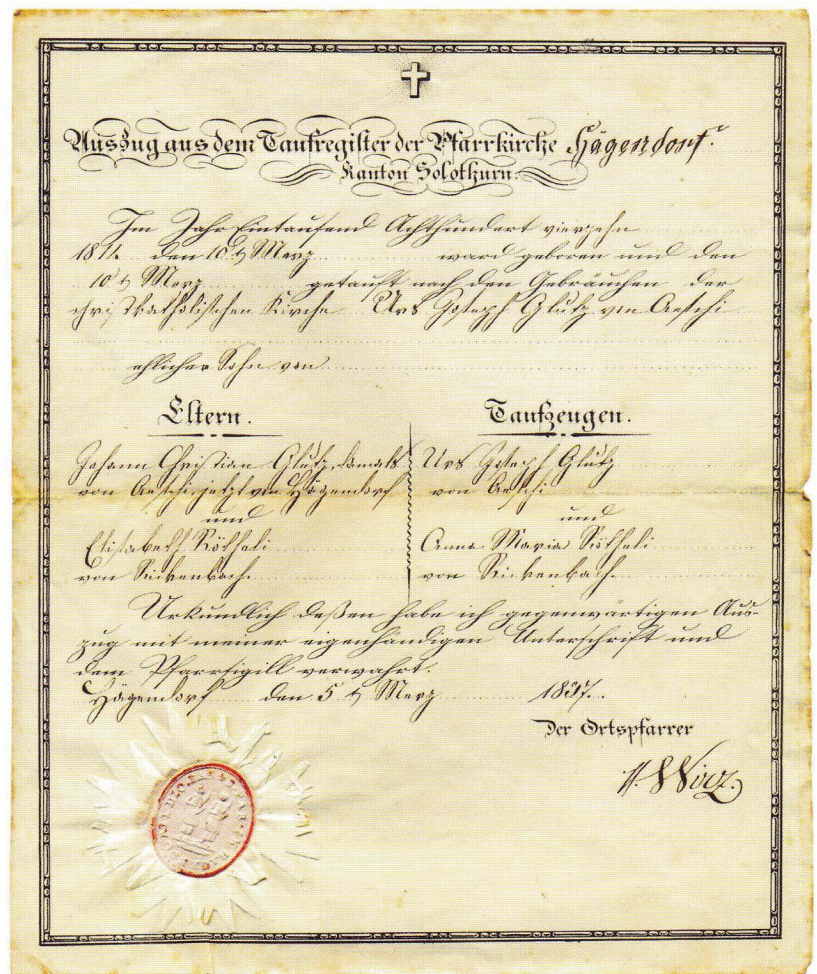 Auszug aus dem Taufregister der Pfarrkirche Hägendorf.
Kanton Solothurn.
Im Jahr Eintausend Achthundert vierzehn
1814. den 10t Merz ward geboren und den
10t Merz getauft nach den Gebräuchen der
christkatholischen Kirche Urs Joseph Glutz von Aeschi
ehlicher Sohn von
Eltern.
Johann Christian Glutz, damals
von Aeschi, jetzt von Hägendorf
und
Elisabeth Rötheli
von Rickenbach.
Taufzeugen.
Urs Joseph Glutz
von Aeschi
und
Anna Maria Rötheli
von Rickenbach.
Urkundlich deßen habe ich gegenwärtigen Aus-
zug mit meiner eigenhändigen Unterschrift und
dem Pfarrsigill verwahrt.
Hägendorf den 5t Merz 1837.
Der Ortspfarrer
Wirz.